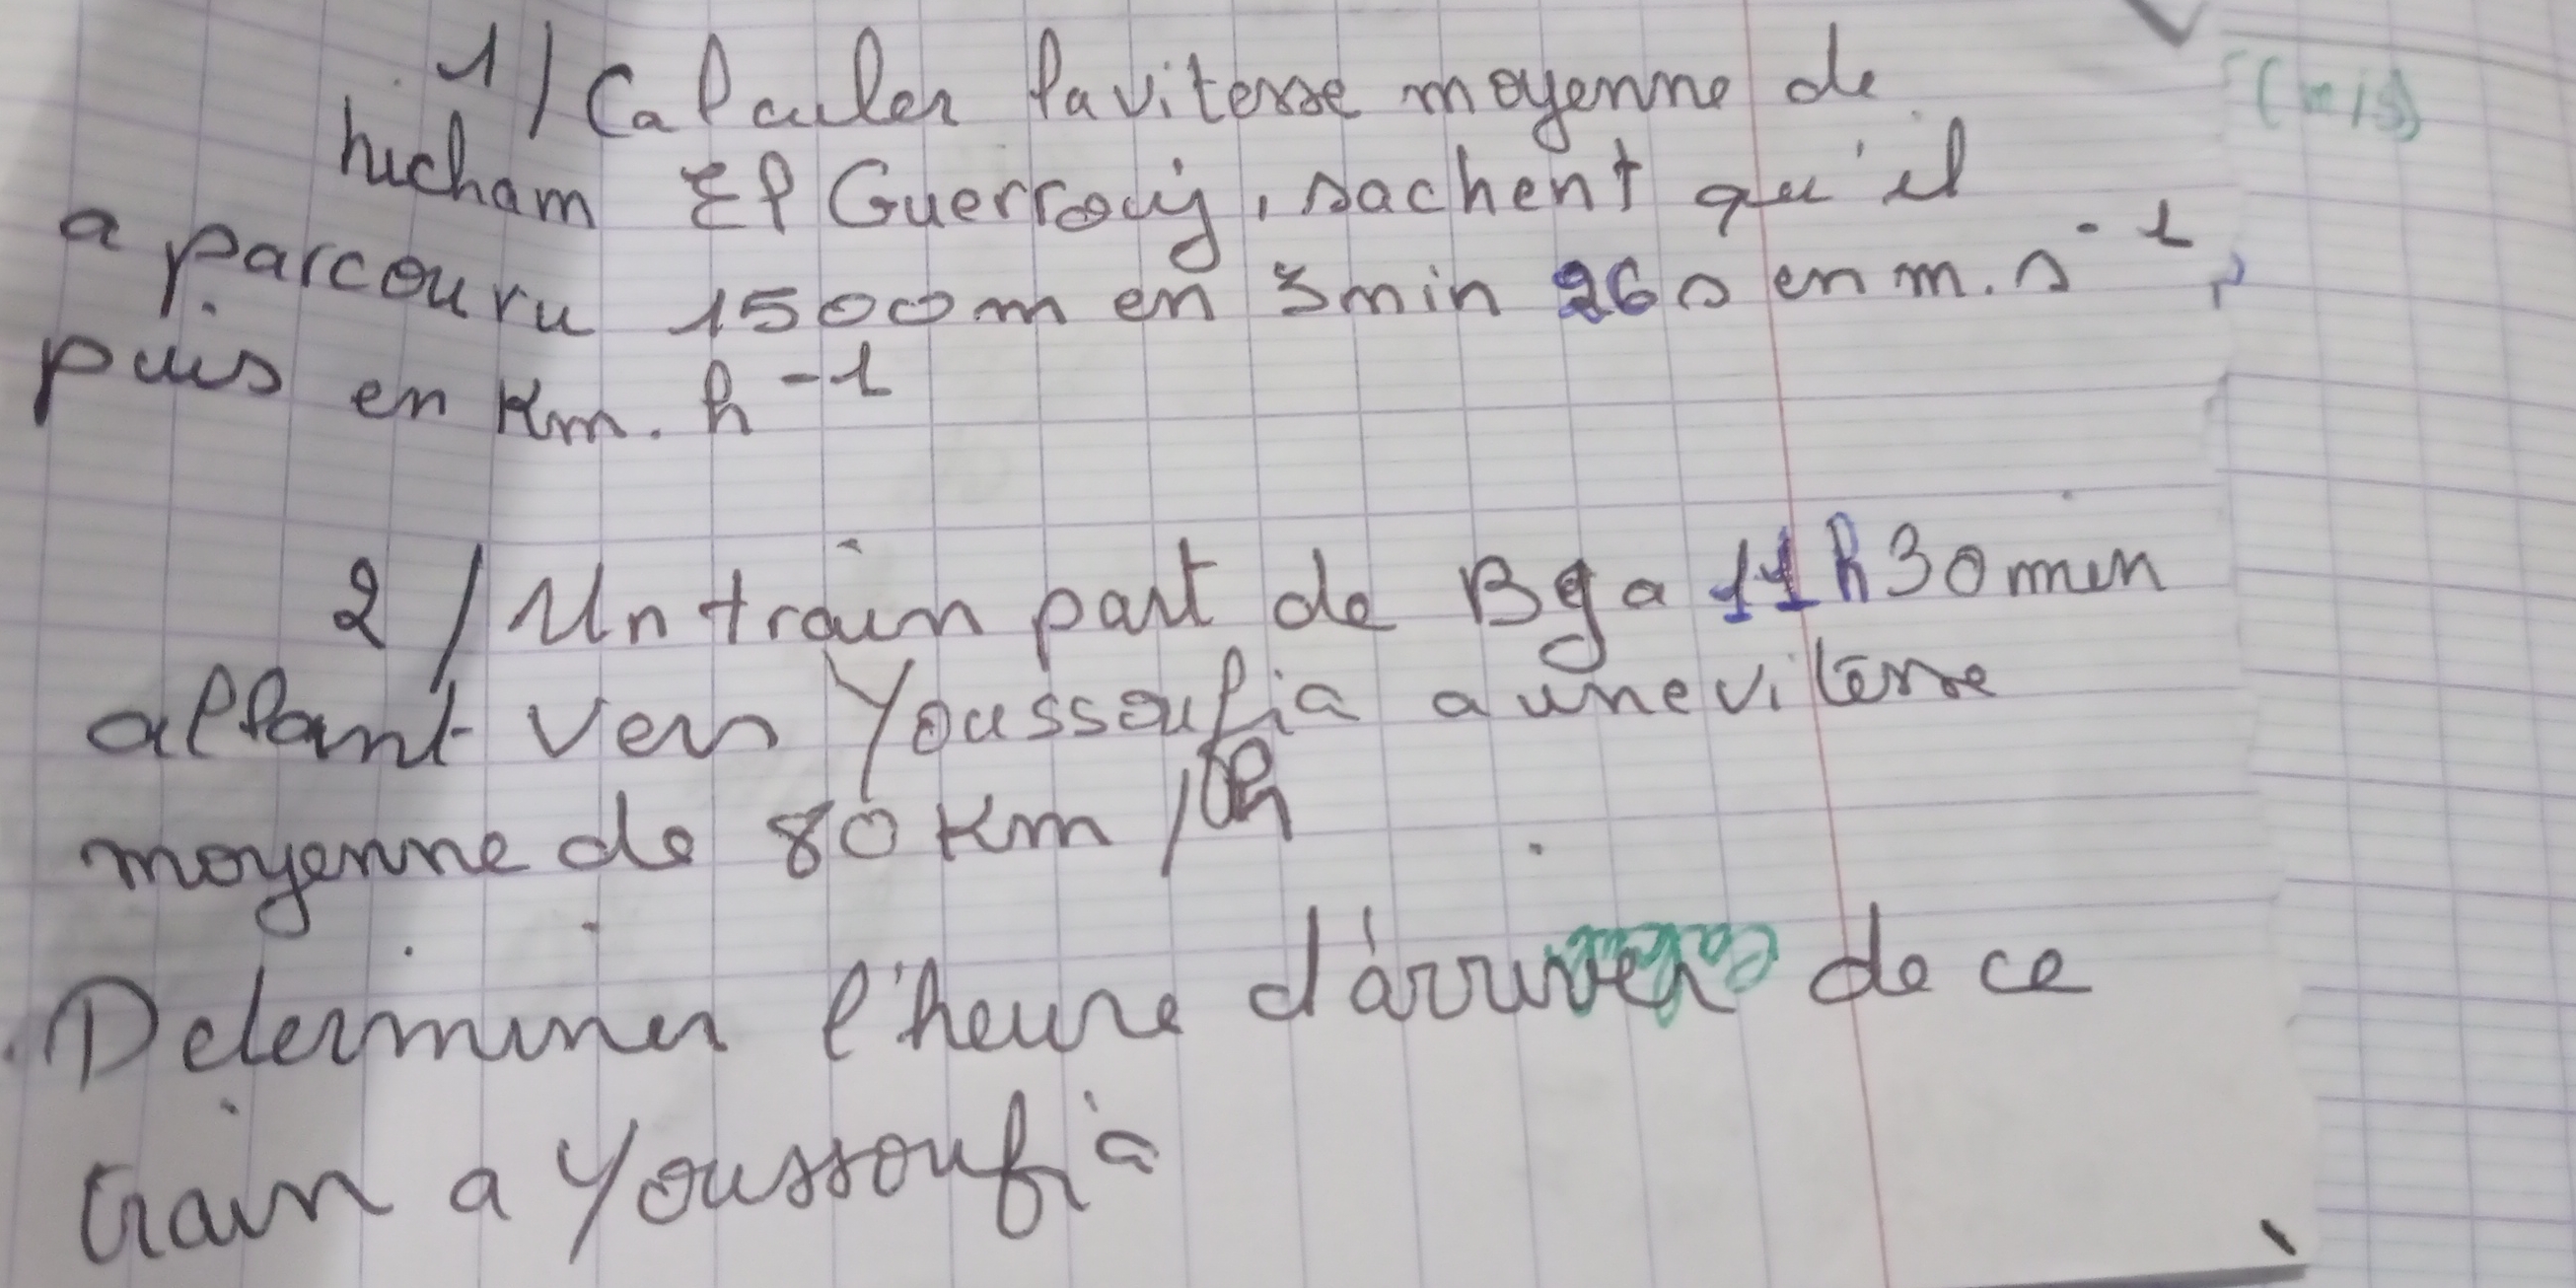 1/ Calculer la vitesse moyenne de
hicham El Guerrouj, sachent qu'il
a parcouru 1500m en 3min 26s en m.s⁻¹,
puis en Km.h⁻¹
2/ Un train part de Bg a 11h30min
allant vers Youssoufia a une vitesse
moyenne de 80 Km/h
Determiner l'heure d'arriver de ce
train a Youssoufia
(m/s)